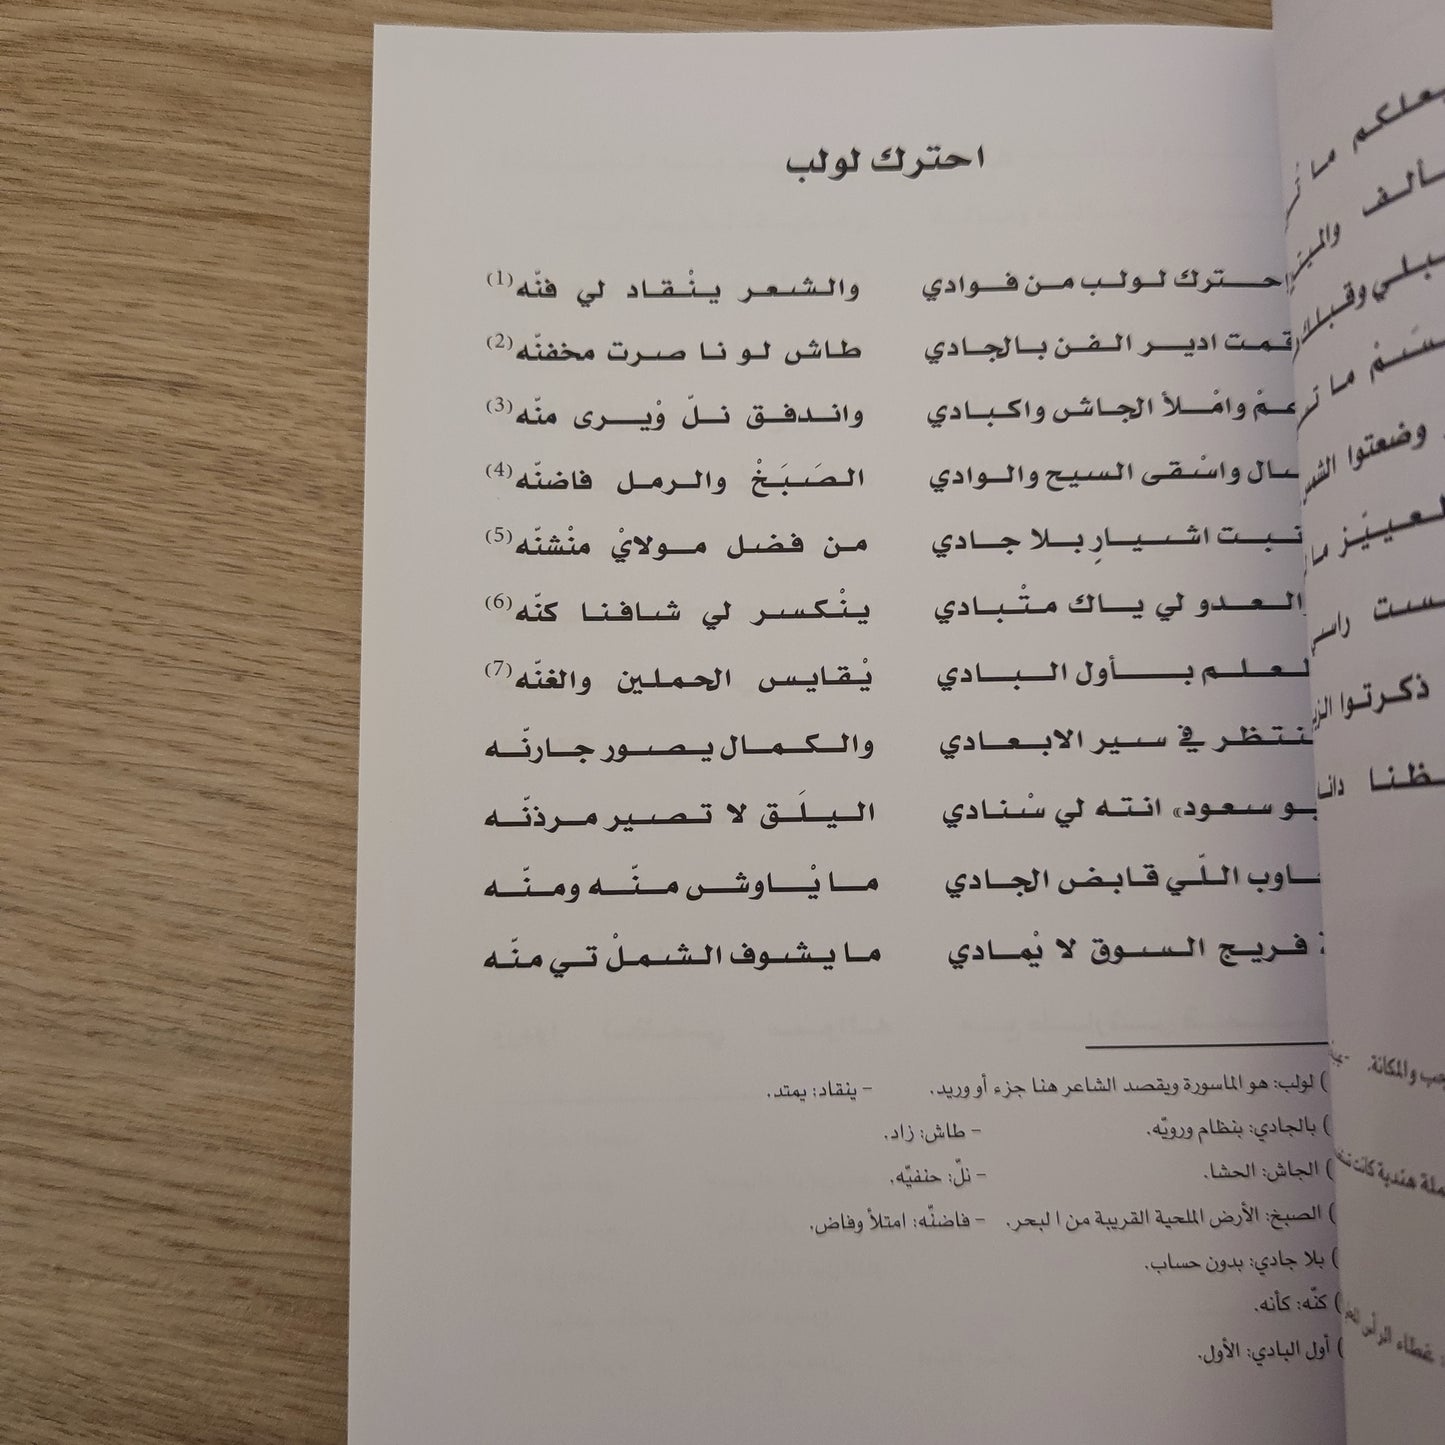 احترك لولب
احترك لولب من فوادي والشعر ينْقاد لي فنّه(1)
قمت ادير الفن بالجادي طاش لو نا صرت مخفنّه(2)
وامْلأ الجاش واكبادي واندفق نلّ وْيرى منّه(3)
سال واسْقى السيح والوادي الصَبَخْ والرمل فاضنّه(4)
نبت اشيارِ بلا جادي من فضل مولايْ منْشنّه(5)
العدو لي ياك متْبادي ينْكسر لي شافنا كنّه(6)
لعلم بأول البادي يْقايس الحملين والغنّه(7)
نتظر في سير الابعادي والكمال يصور جارنّه
بو سعود» انته لي سْنادي اليلَق لا تصير مرذنّه
اللّي قابض الجادي ما يْاوش منّه ومنّه
فريج السوق لا يْمادي ما يشوف الشملْ تي منّه
) لولب: هو الماسورة ويقصد الشاعر هنا جزء أو وريد. - ينقاد: يمتد.
) بالجادي: بنظام ورويّه. - طاش: زاد.
) الجاش: الحشا. - نلّ: حنفيّه.
) الصبخ: الأرض الملحية القريبة من البحر. - فاضنّه: امتلأ وفاض.
) بلا جادي: بدون حساب.
) كنّه: كأنه.
) أول البادي: الأول.
علكم ما
ألف
بلي وقبلك
ما
وضعتوا
لعييّز
ست راسي
ذكرتوا
ظنا
والمكانة.
هندية كانت
غطاء الرأس